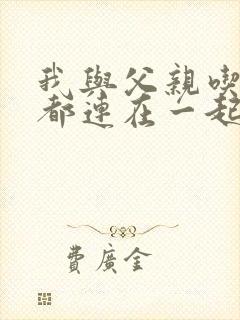 我與父親喫
都連在一起
費廣金